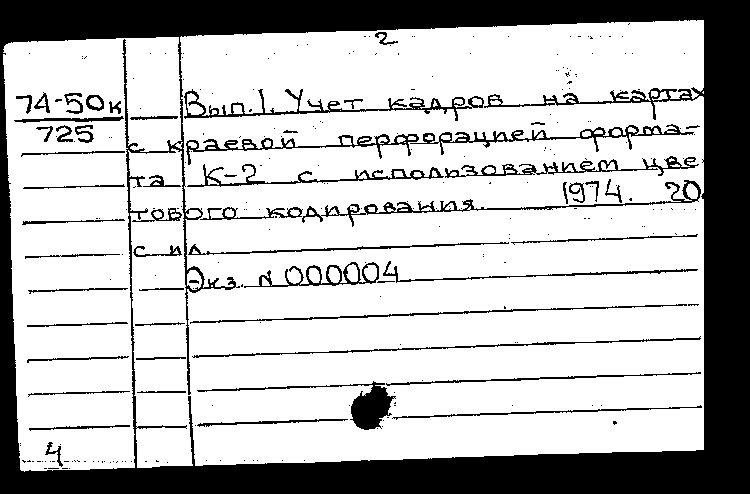 2
74-50к Вып.1. Учет кадров на картах
725
с краевой перфорацией форма-
та К-2 с использованием цве
тового кодирования. 1974. 20
с ил.
Экз. N 000004
4